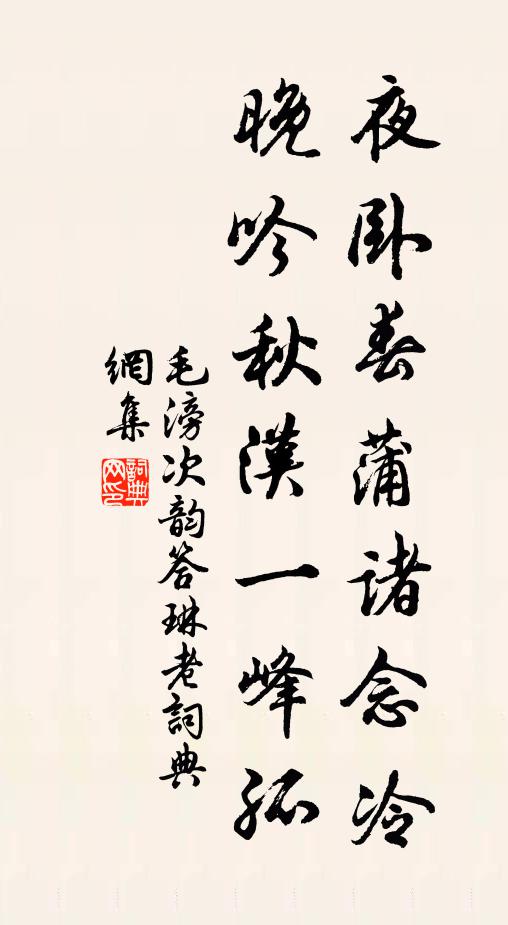 夜卧春蒲诸念冷
晚吟秋漠一峰孤
毛滂次韵答琳老詞典
網集
詞典网印